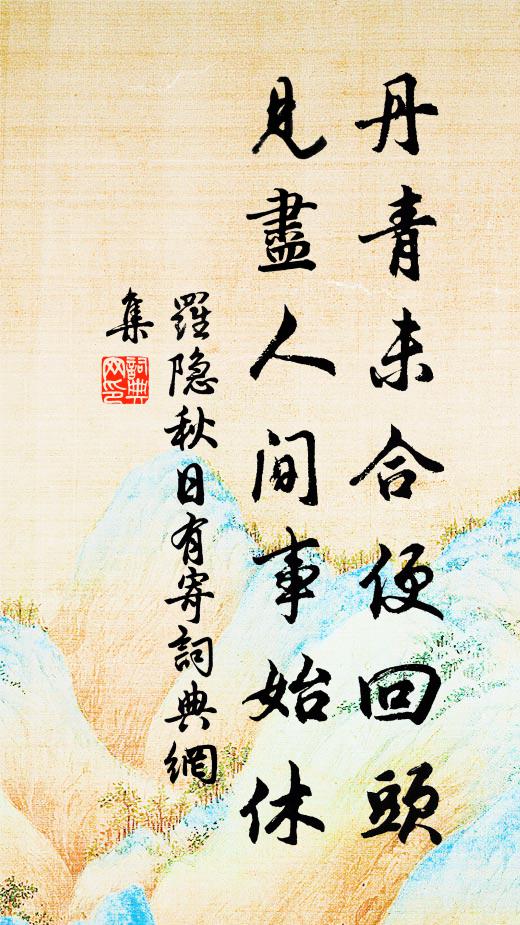 丹青未合便回頭
見盡人間事始休
羅隐秋日有寄詞典網
集
詞典網印